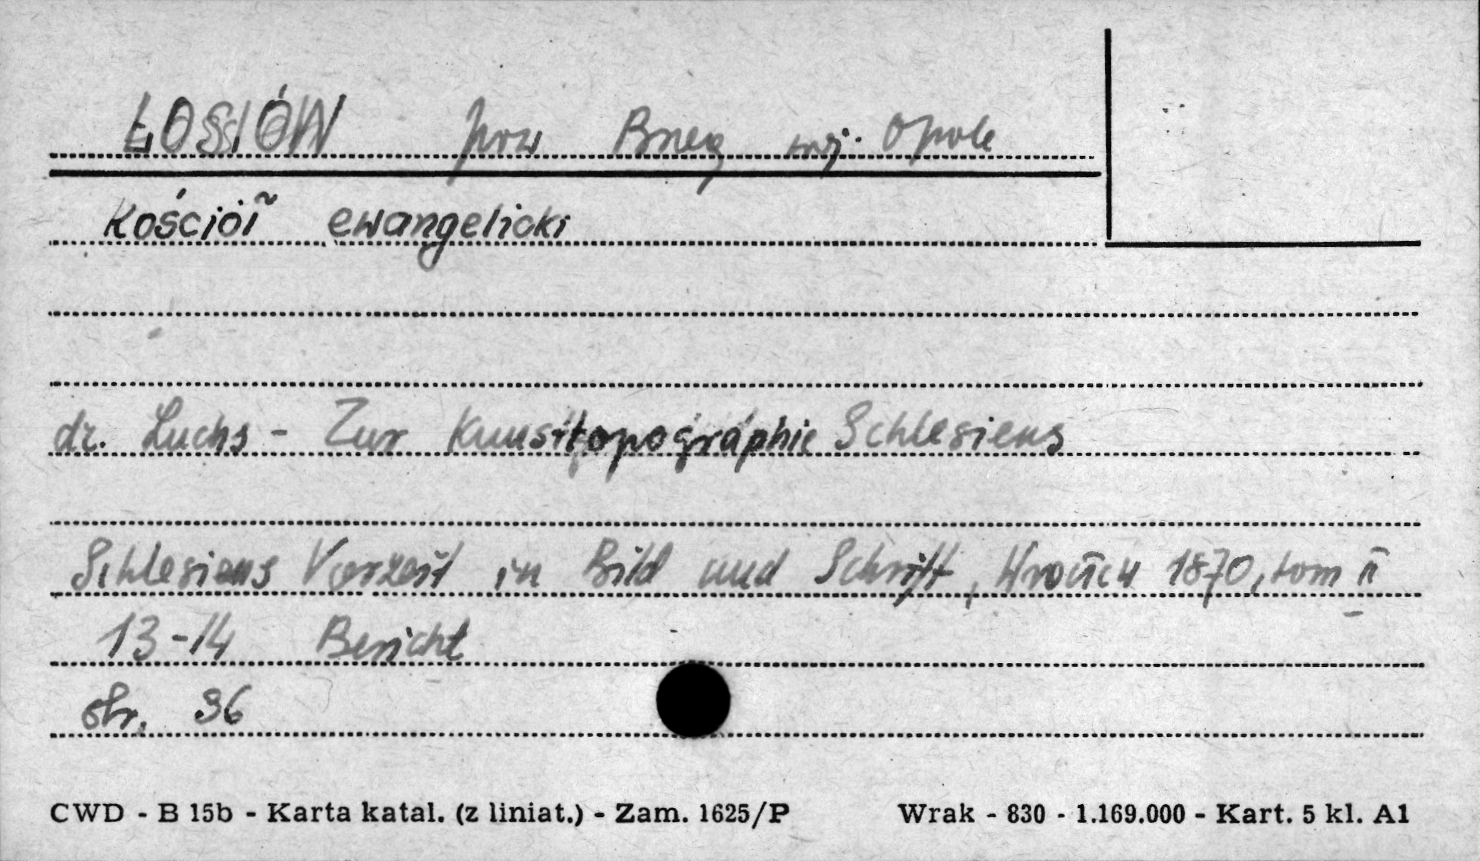 ŁOSIÓW pow Brzeg woj. Opole
Kościół ewangelicki
dr. Luchs - Zur Kunsttopographie Schlesiens
Schlesiens Vorzeit in Bild und Schrift, Wrocław 1870, tom II
13-14 Bericht
str. 36
CWD - B 15b - Karta katal. (z liniat.) - Zam. 1625/P Wrak - 830 - 1.169.000 - Kart. 5 kl. A1